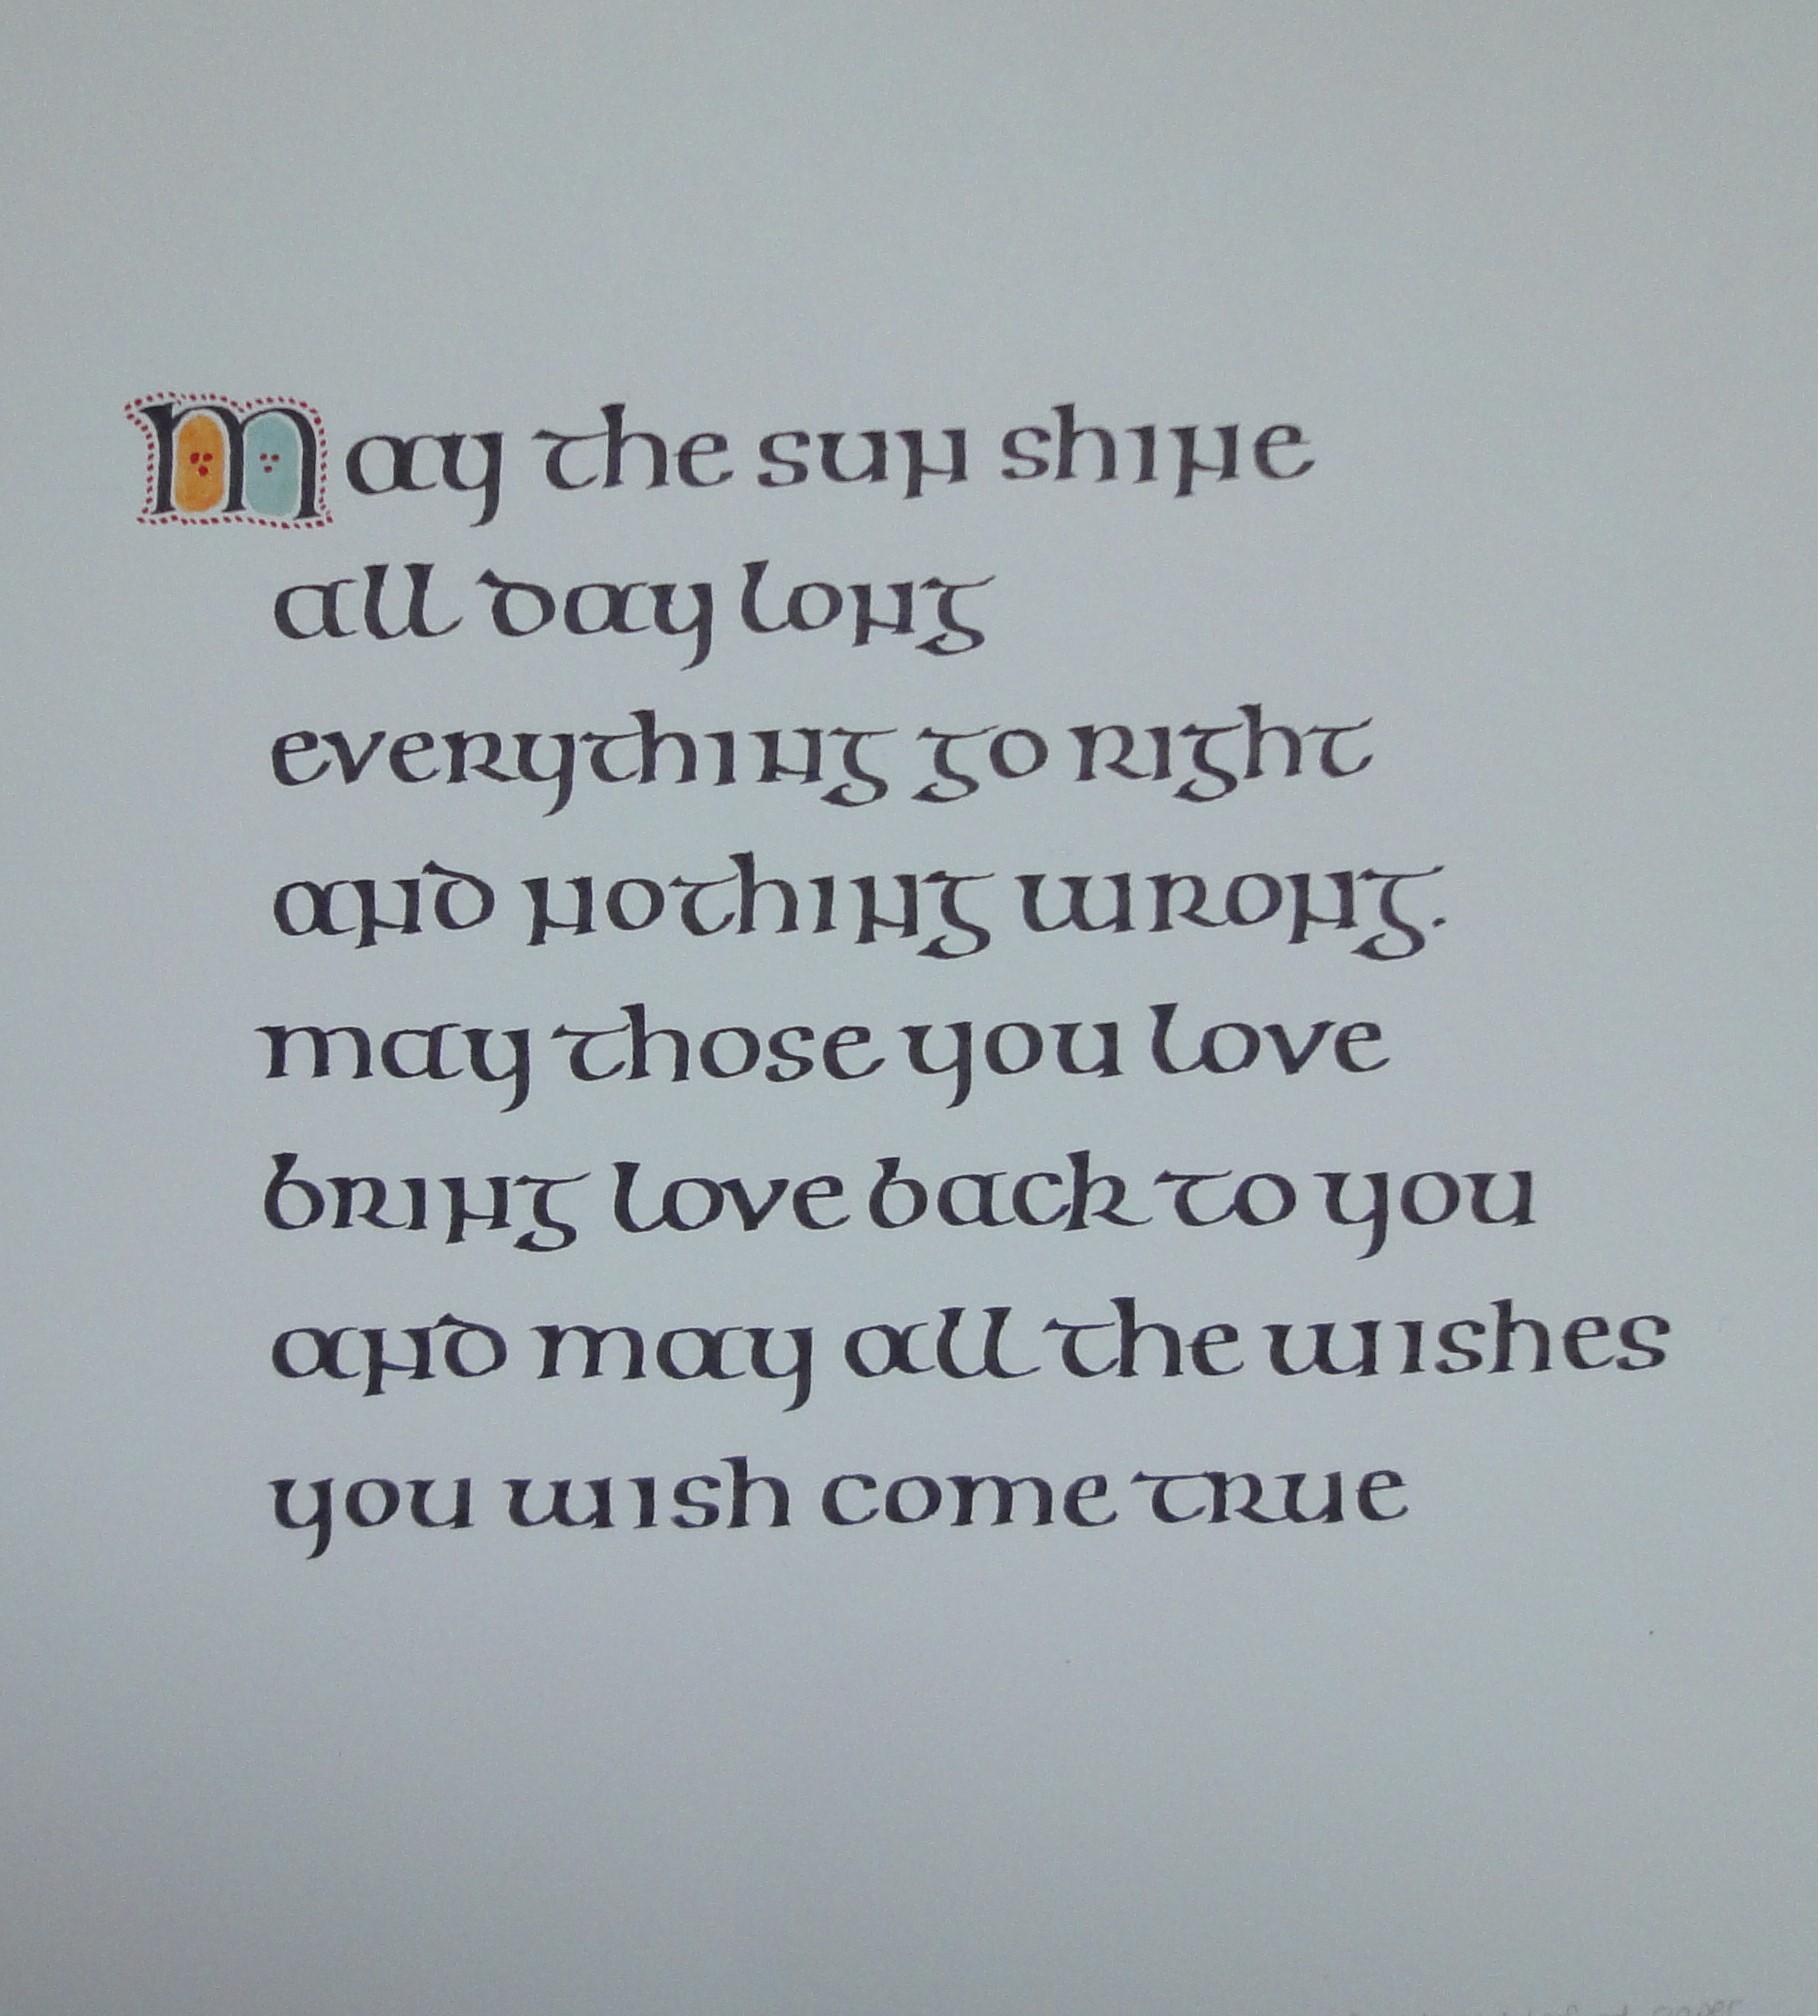 May the sun shine
all day long
everything go right
and nothing wrong.
may those you love
bring love back to you
and may all the wishes
you wish come true